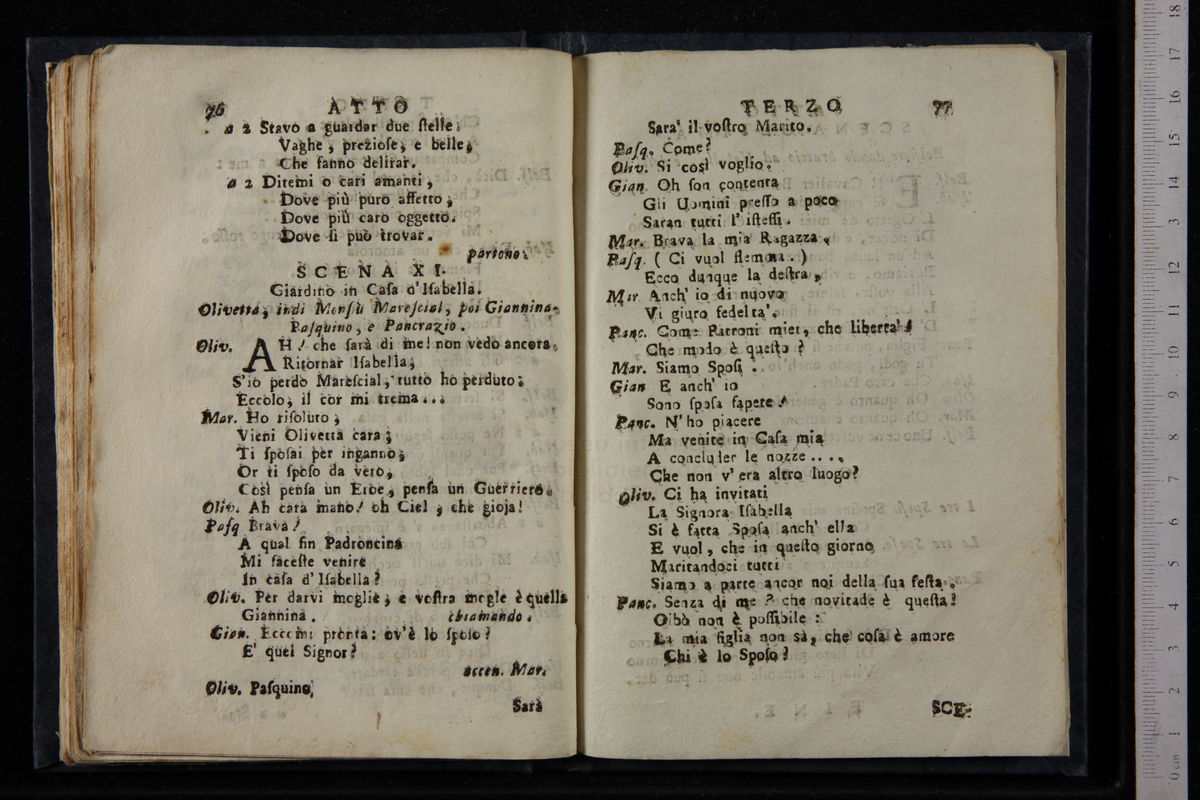 76 ATTO
a 2 Stavo a guardar due ſtelle:
Vaghe, prezioſe, e belle,
Che fanno delirar.
a 2 Ditemi o cari amanti,
Dove più puro affetto,
Dove più caro oggetto.
Dove ſi può trovar.
partono.
SCENA XI.
Giardino in Caſa d'Iſabella.
Olivetta, indi Monſù Mareſcial, poi Giannina,
Paſquino, e Pancrazio.
Oliv. AH! che farà di me! non vedo ancora,
Ritornar Iſabella;
S'io perdo Mareſcial, tutto ho perduto;
Eccolo, il cor mi trema...
Mar. Ho riſoluto;
Vieni Olivetta cara;
Ti ſpoſai per inganno;
Or ti ſpoſo da vero,
Così penſa un Eroe, penſa un Guerriero.
Oliv. Ah cara mano! oh Ciel, che gioja!
Paſq Brava!
A qual fin Padroncina
Mi faceſte venire
In caſa d'Iſabella?
Oliv. Per darvi moglie, e voſtra mogle è quella
Giannina. chiamando.
Gian. Eccomi pronta: ov'è lo ſpoſo?
E' quel Signor?
accen. Mar.
Oliv. Paſquino,
Sarà
TERZO 77
Sara' il voſtro Marito.
Paſq. Come?
Oliv. Si così voglio.
Gian. Oh ſon contenta
Gli Uomini preſſo a poco
Saran tutti l'iſteſſi.
Mar. Brava la mia Ragazza.
Paſq. (Ci vuol flemma.)
Ecco dunque la deſtra,
Mar. Anch'io di nuovo
Vi giuro fedelta'.
Panc. Come Patroni miei, che liberta'!
Che modo è queſto?
Mar. Siamo Spoſi.
Gian E anch'io
Sono ſpoſa ſapete!
Panc. N'ho piacere
Ma venite in Caſa mia
A concluder le nozze....
Che non v'era altro luogo?
Oliv. Ci ha invitati
La Signora Iſabella
Si è fatta Spoſa anch'ella
E vuol, che in queſto giorno
Maritandoci tutti
Siamo a parte ancor noi della ſua feſta.
Panc. Senza di me? che novitade è queſta!
Oibò non è poſſibile:
La mia figlia non sà, che coſa è amore
Chi è lo Spoſo?
SCE-